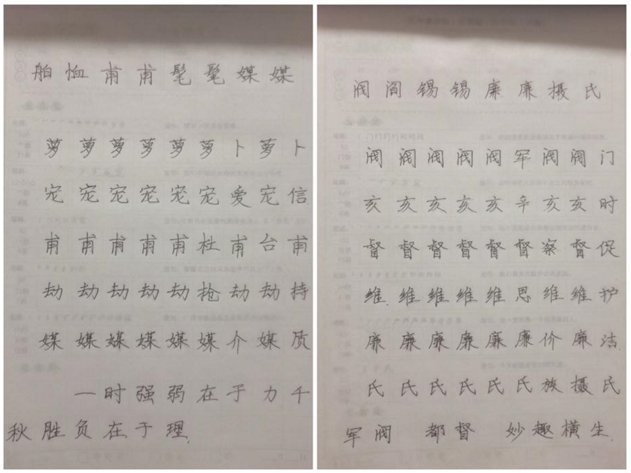 舶恤甫甫髦髦媒媒
萝萝萝萝萝萝卜萝卜
宠宠宠宠宠宠爱宠信
甫甫甫甫甫杜甫台甫
劫劫劫劫劫抢劫劫持
媒媒媒媒媒媒介媒质
一时强弱在于力千
秋胜负在于理.
阀阎锡锡廉廉摄氏
阀阀阀阀阀军阀阀门
亥亥亥亥亥辛亥亥时
督督督督督督察督促
维维维维维思维维护
廉廉廉廉廉廉价廉洁
氏氏氏氏氏氏族摄氏
军阀 都督 妙趣横生